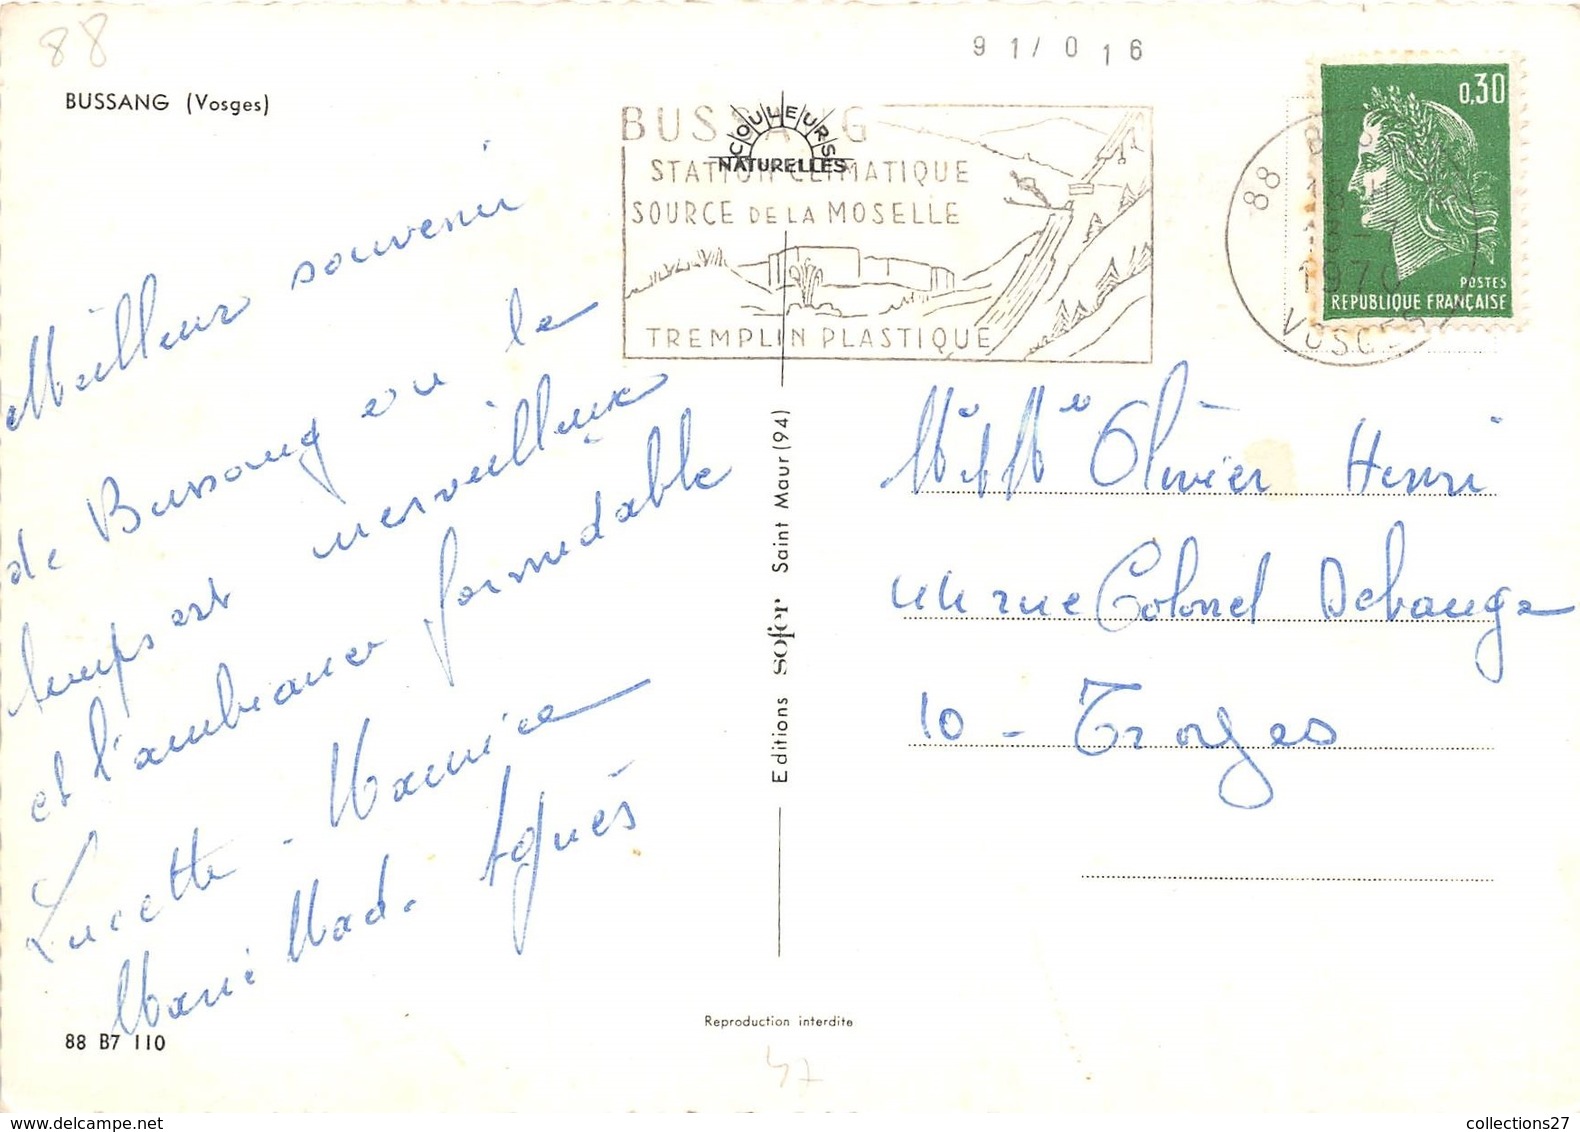 88
91/016
BUSSANG (Vosges)
BUSSANG
COULEURS
NATURELLES
STATION CLIMATIQUE
SOURCE DE LA MOSELLE
TREMPLIN PLASTIQUE
0,30
POSTES
REPUBLIQUE FRANÇAISE
88
1970
VOSGES
Meilleur souvenir
de Bussang ou le
temps est merveilleux
et l'ambiance formidable
Lucette - Maurice
Marie Mad. Agnès
Mr et Mme Olivier Henri
rue Colonel Debange
10 - Troyes
Editions sofer Saint Maur (94)
Reproduction interdite
88 B7 110
47
collections27